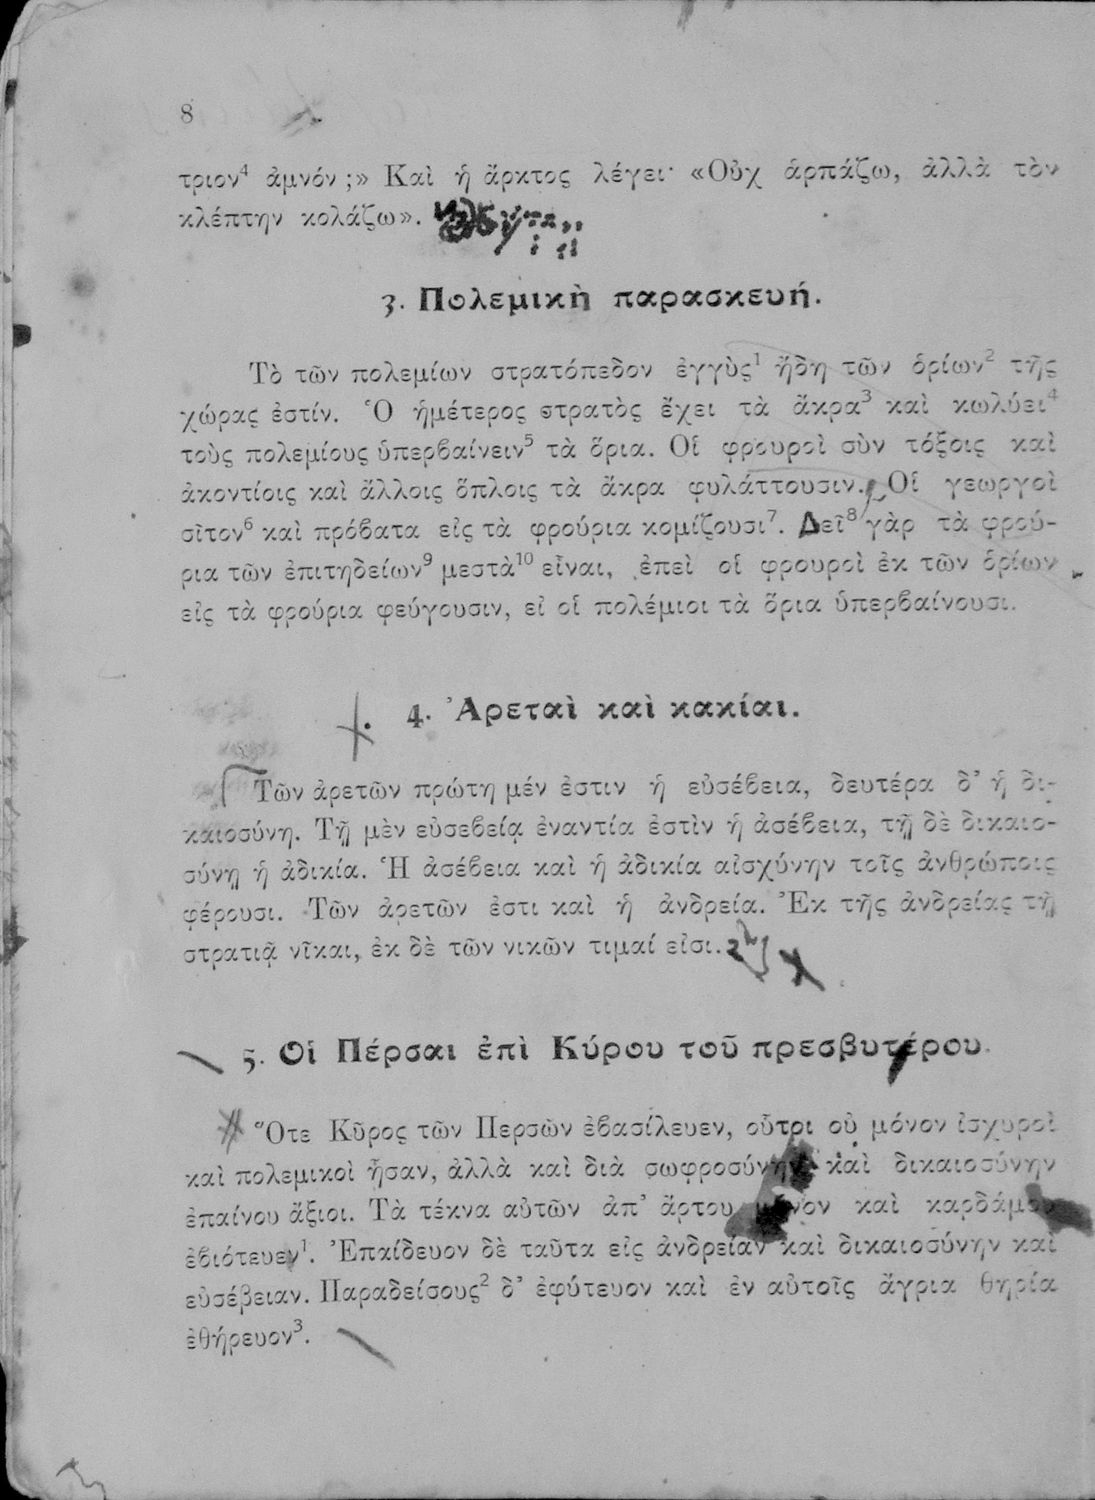 8
τριον⁴ ἀμνόν ;» Καὶ ἡ ἄρκτος λέγει· «Οὐχ ἁρπάζω, ἀλλὰ τὸν
κλέπτην κολάζω».
3. Πολεμικὴ παρασκευή.
Τὸ τῶν πολεμίων στρατόπεδον ἐγγὺς¹ ἤδη τῶν ὁρίων² τῆς
χώρας ἐστίν. Ὁ ἡμέτερος στρατὸς ἔχει τὰ ἄκρα³ καὶ κωλύει⁴
τοὺς πολεμίους ὑπερβαίνειν⁵ τὰ ὅρια. Οἱ φρουροὶ σὺν τόξοις καὶ
ἀκοντίοις καὶ ἄλλοις ὅπλοις τὰ ἄκρα φυλάττουσιν. Οἱ γεωργοὶ
σῖτον⁶ καὶ πρόβατα εἰς τὰ φρούρια κομίζουσι⁷. Δεῖ⁸ γὰρ τὰ φρού-
ρια τῶν ἐπιτηδείων⁹ μεστὰ¹⁰ εἶναι, ἐπεὶ οἱ φρουροὶ ἐκ τῶν ὁρίων
εἰς τὰ φρούρια φεύγουσιν, εἰ οἱ πολέμιοι τὰ ὅρια ὑπερβαίνουσι.
4. Ἀρεταὶ καὶ κακίαι.
Τῶν ἀρετῶν πρώτη μέν ἐστιν ἡ εὐσέβεια, δευτέρα δ’ ἡ δι-
καιοσύνη. Τῇ μὲν εὐσεβείᾳ ἐναντία ἐστὶν ἡ ἀσέβεια, τῇ δὲ δικαιο-
σύνῃ ἡ ἀδικία. Ἡ ἀσέβεια καὶ ἡ ἀδικία αἰσχύνην τοῖς ἀνθρώποις
φέρουσι. Τῶν ἀρετῶν ἐστι καὶ ἡ ἀνδρεία. Ἐκ τῆς ἀνδρείας τῇ
στρατιᾷ νῖκαι, ἐκ δὲ τῶν νικῶν τιμαί εἰσι.
5. Οἱ Πέρσαι ἐπὶ Κύρου τοῦ πρεσβυτέρου.
Ὅτε Κῦρος τῶν Περσῶν ἐβασίλευεν, οὗτοι οὐ μόνον ἰσχυροὶ
καὶ πολεμικοὶ ἦσαν, ἀλλὰ καὶ διὰ σωφροσύνην καὶ δικαιοσύνην
ἐπαίνου ἄξιοι. Τὰ τέκνα αὐτῶν ἀπ’ ἄρτου μόνον καὶ καρδάμου
ἐβιότευεν¹. Ἐπαίδευον δὲ ταῦτα εἰς ἀνδρείαν καὶ δικαιοσύνην καὶ
εὐσέβειαν. Παραδείσους² δ’ ἐφύτευον καὶ ἐν αὐτοῖς ἄγρια θηρία
ἐθήρευον³.